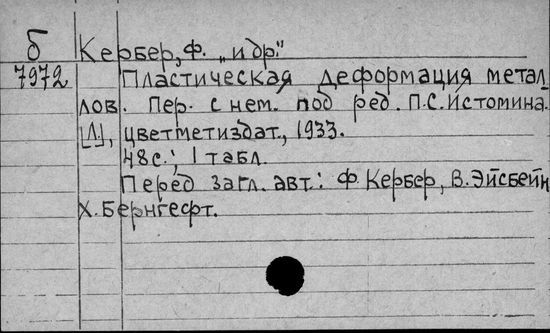 б Кербер, Ф. „и др."
7972 Пластическая деформация метал-
лов. Пер. с нем. под ред. П.С.Истомина.
[Л.], цветметиздат., 1933.
48с.; 1 табл.
Перед загл. авт.: Ф.Кербер, В.Эйсбейн
Х.Бернгефт.